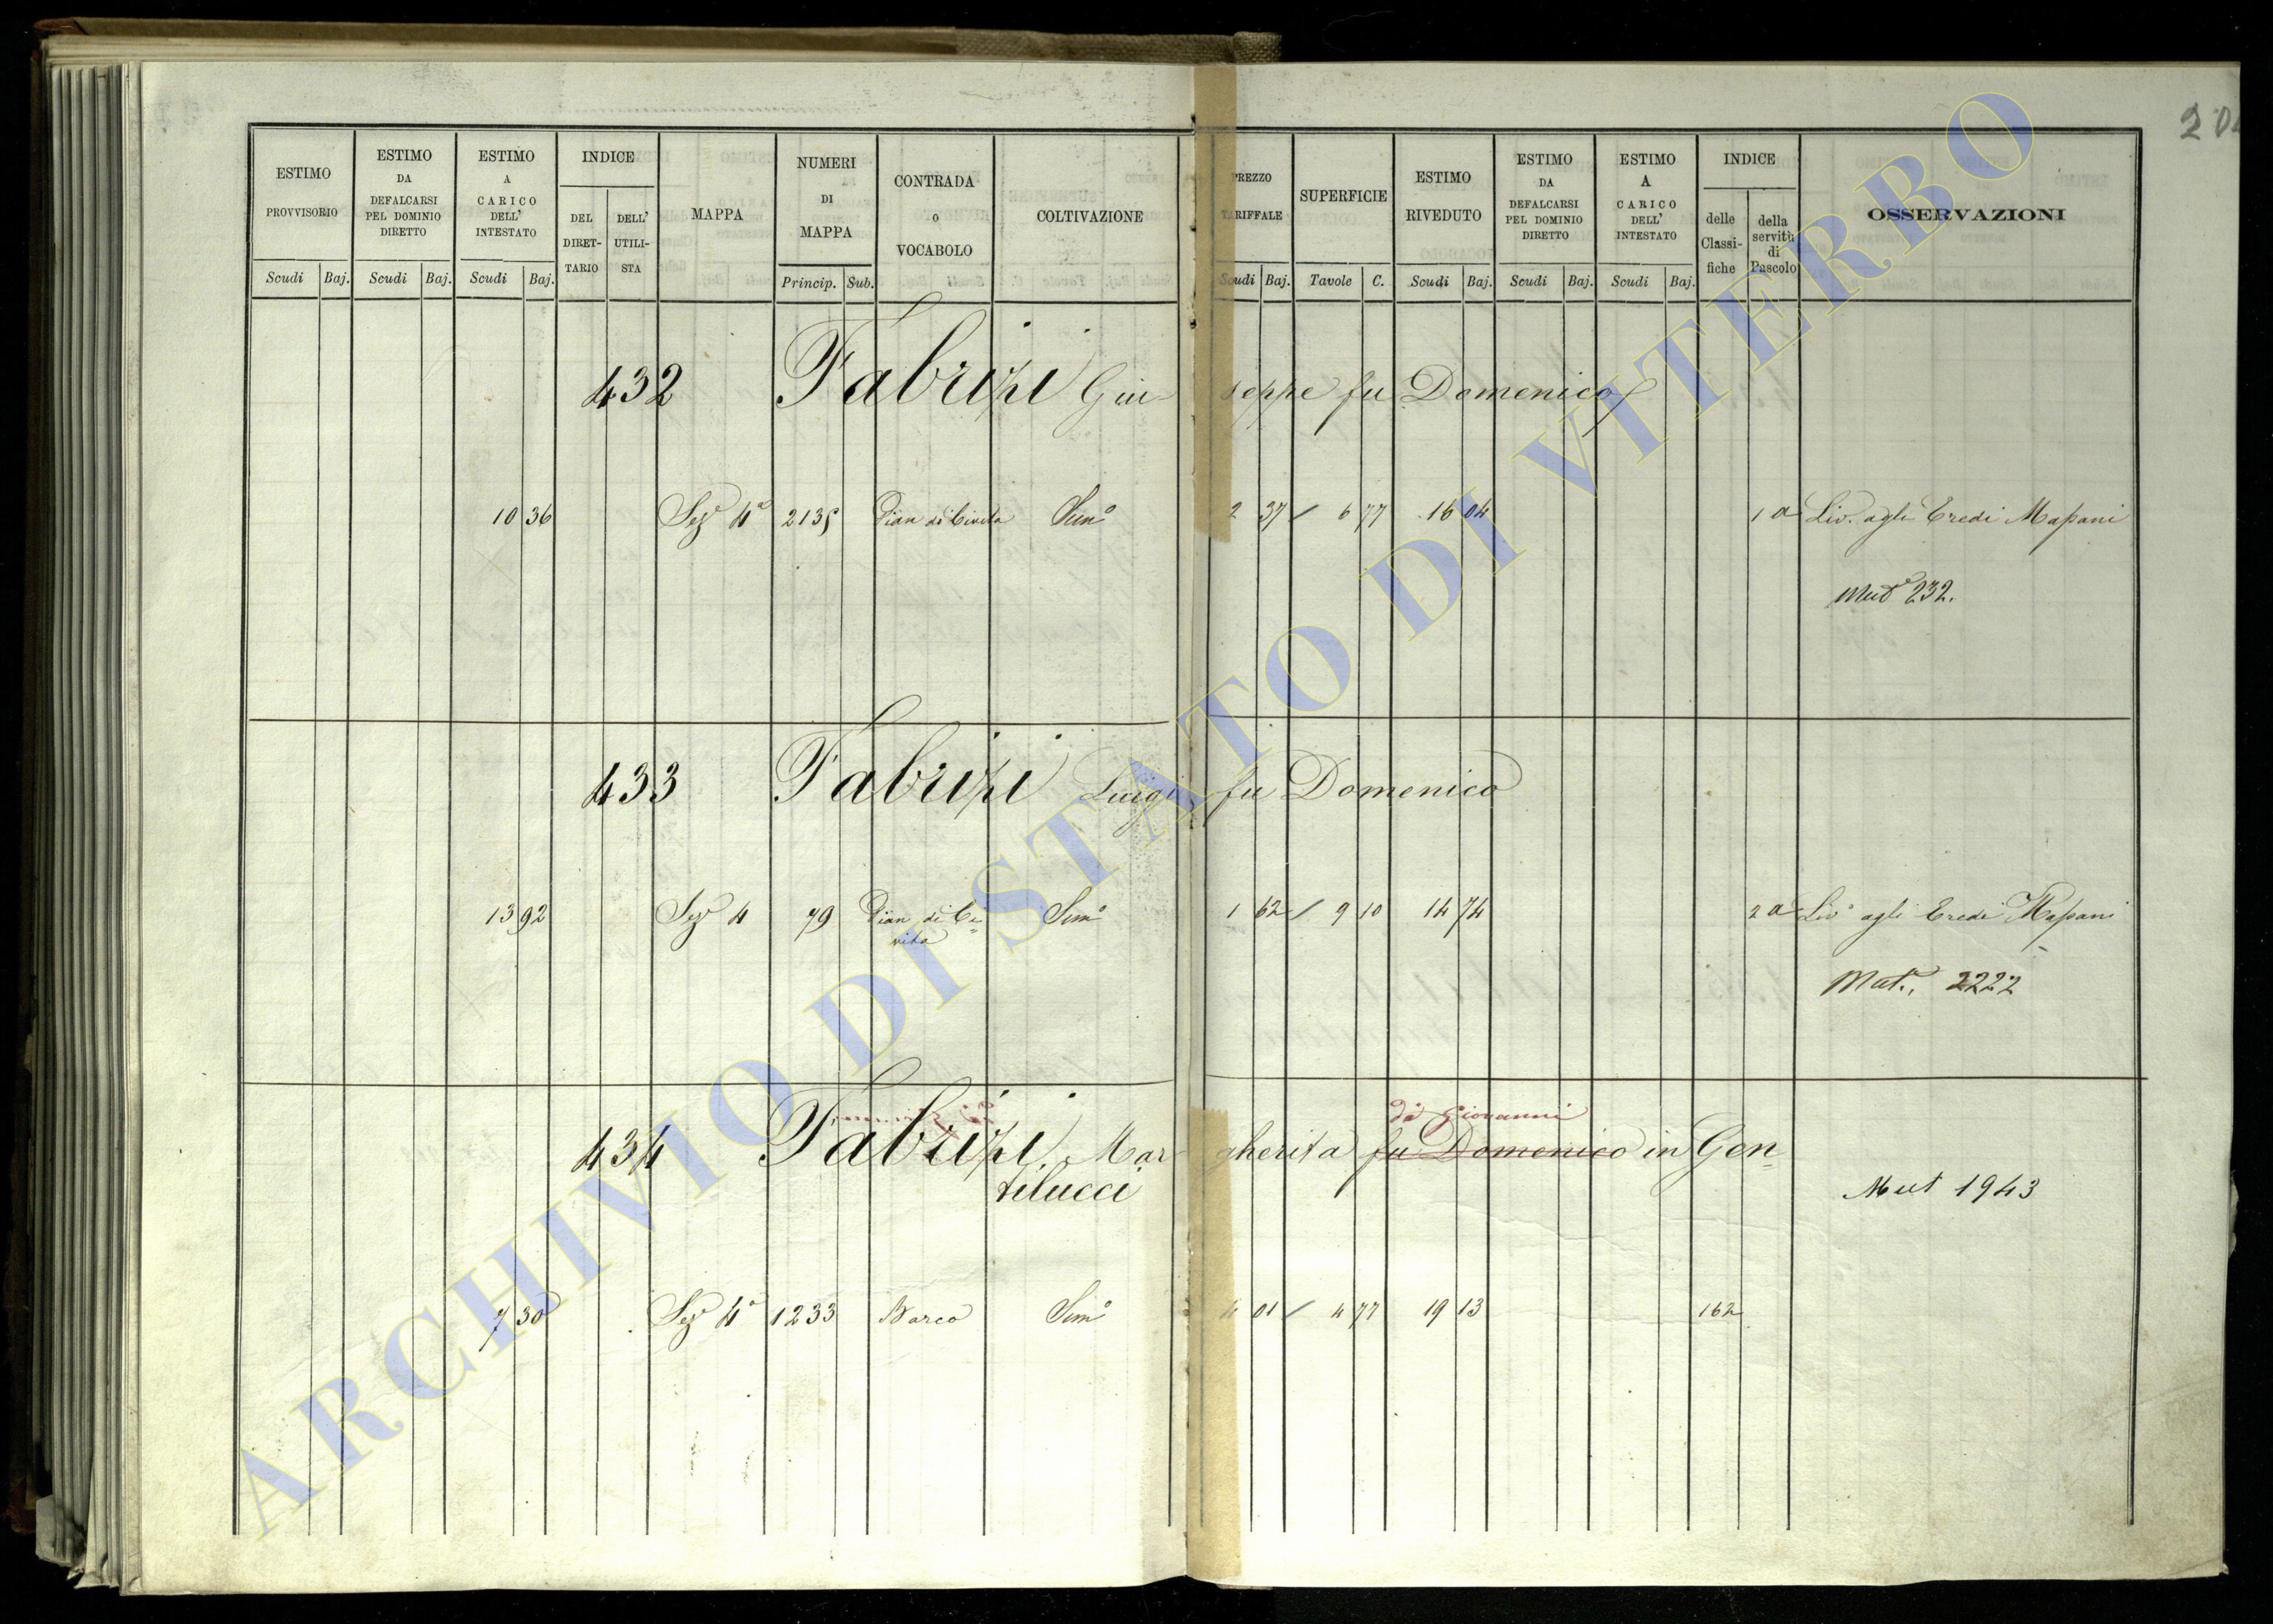 ESTIMO PROVVISORIO Scudi Baj.
ESTIMO DA DEFALCARSI PEL DOMINIO DIRETTO Scudi Baj.
ESTIMO A CARICO DELL' INTESTATO Scudi Baj.
INDICE DEL DIRET-TARIO DELL' UTILI-STA
MAPPA
NUMERI DI MAPPA Princip. Sub.
CONTRADA O VOCABOLO
COLTIVAZIONE
PREZZO TARIFFALE Scudi Baj.
SUPERFICIE Tavole C.
ESTIMO RIVEDUTO Scudi Baj.
ESTIMO DA DEFALCARSI PEL DOMINIO DIRETTO Scudi Baj.
ESTIMO A CARICO DELL' INTESTATO Scudi Baj.
INDICE delle Classi-fiche della servitù di Pascolo
OSSERVAZIONI
432 Fabrizi Giuseppe fu Domenico
10 36 Sezº 4ª 2135 Pian di Civita Simº 2 37 / 6 77 16 04 1 a Liv. agli Eredi Massani
Mutª 232.
433 Fabrizi Luigi fu Domenico
13 92 Sezº 4 79 Pian di Ci=
vita Simº 1 62 / 9 10 14 74 2 a Livº agli Eredi Massani
Mut., 2222
di Giovanni
434 Fabrizi Margherita fu Domenico in Gen=
tilucci
Mut 1943
7 30 Sezº 4ª 1233 Barco Simº 4 01 / 4 77 19 13 162
ARCHIVIO DI STATO DI VITERBO